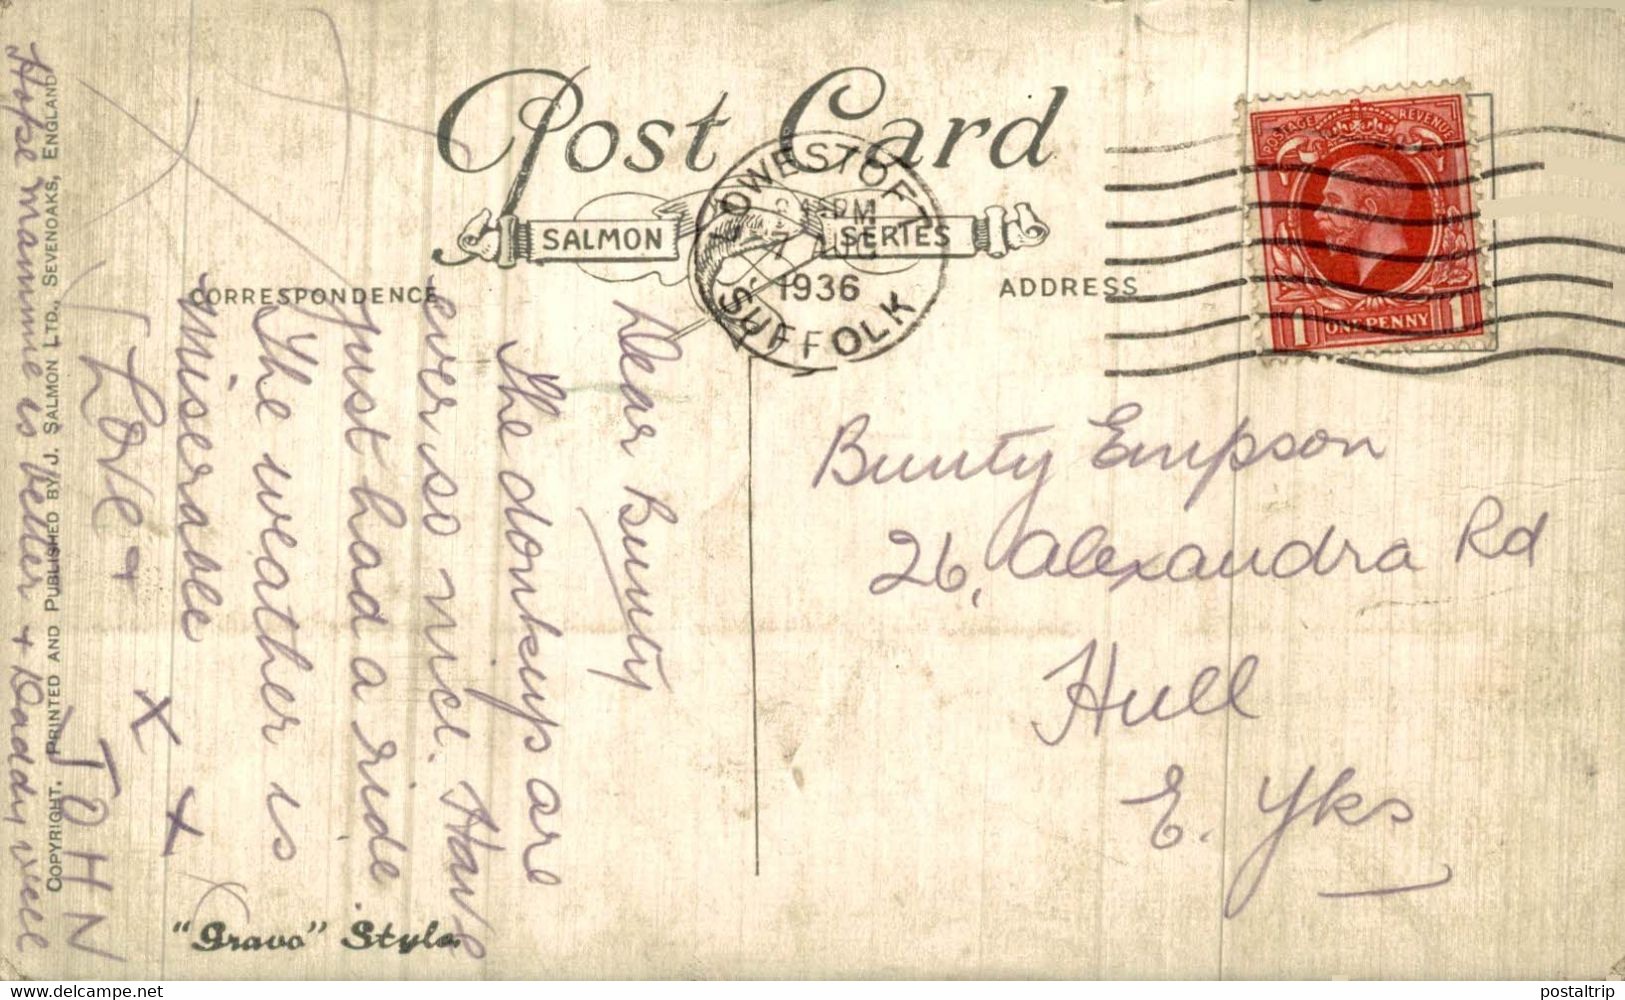 Post Card
SALMON SERIES
CORRESPONDENCE
ADDRESS
LOWESTOFT
PM
7
1936
SUFFOLK
POSTAGE REVENUE
1 ONE PENNY 1
Dear Bunty
The donkeys are
ever so nice. Have
just had a ride
The weather is
miserable
Love +
x x
JOHN
Hope mammie is better + Daddy well
Bunty Empson
26, Alexandra Rd
Hull
E. Yks
COPYRIGHT. PRINTED AND PUBLISHED BY J. SALMON LTD., SEVENOAKS, ENGLAND
"Gravo" Style.
© postaltrip